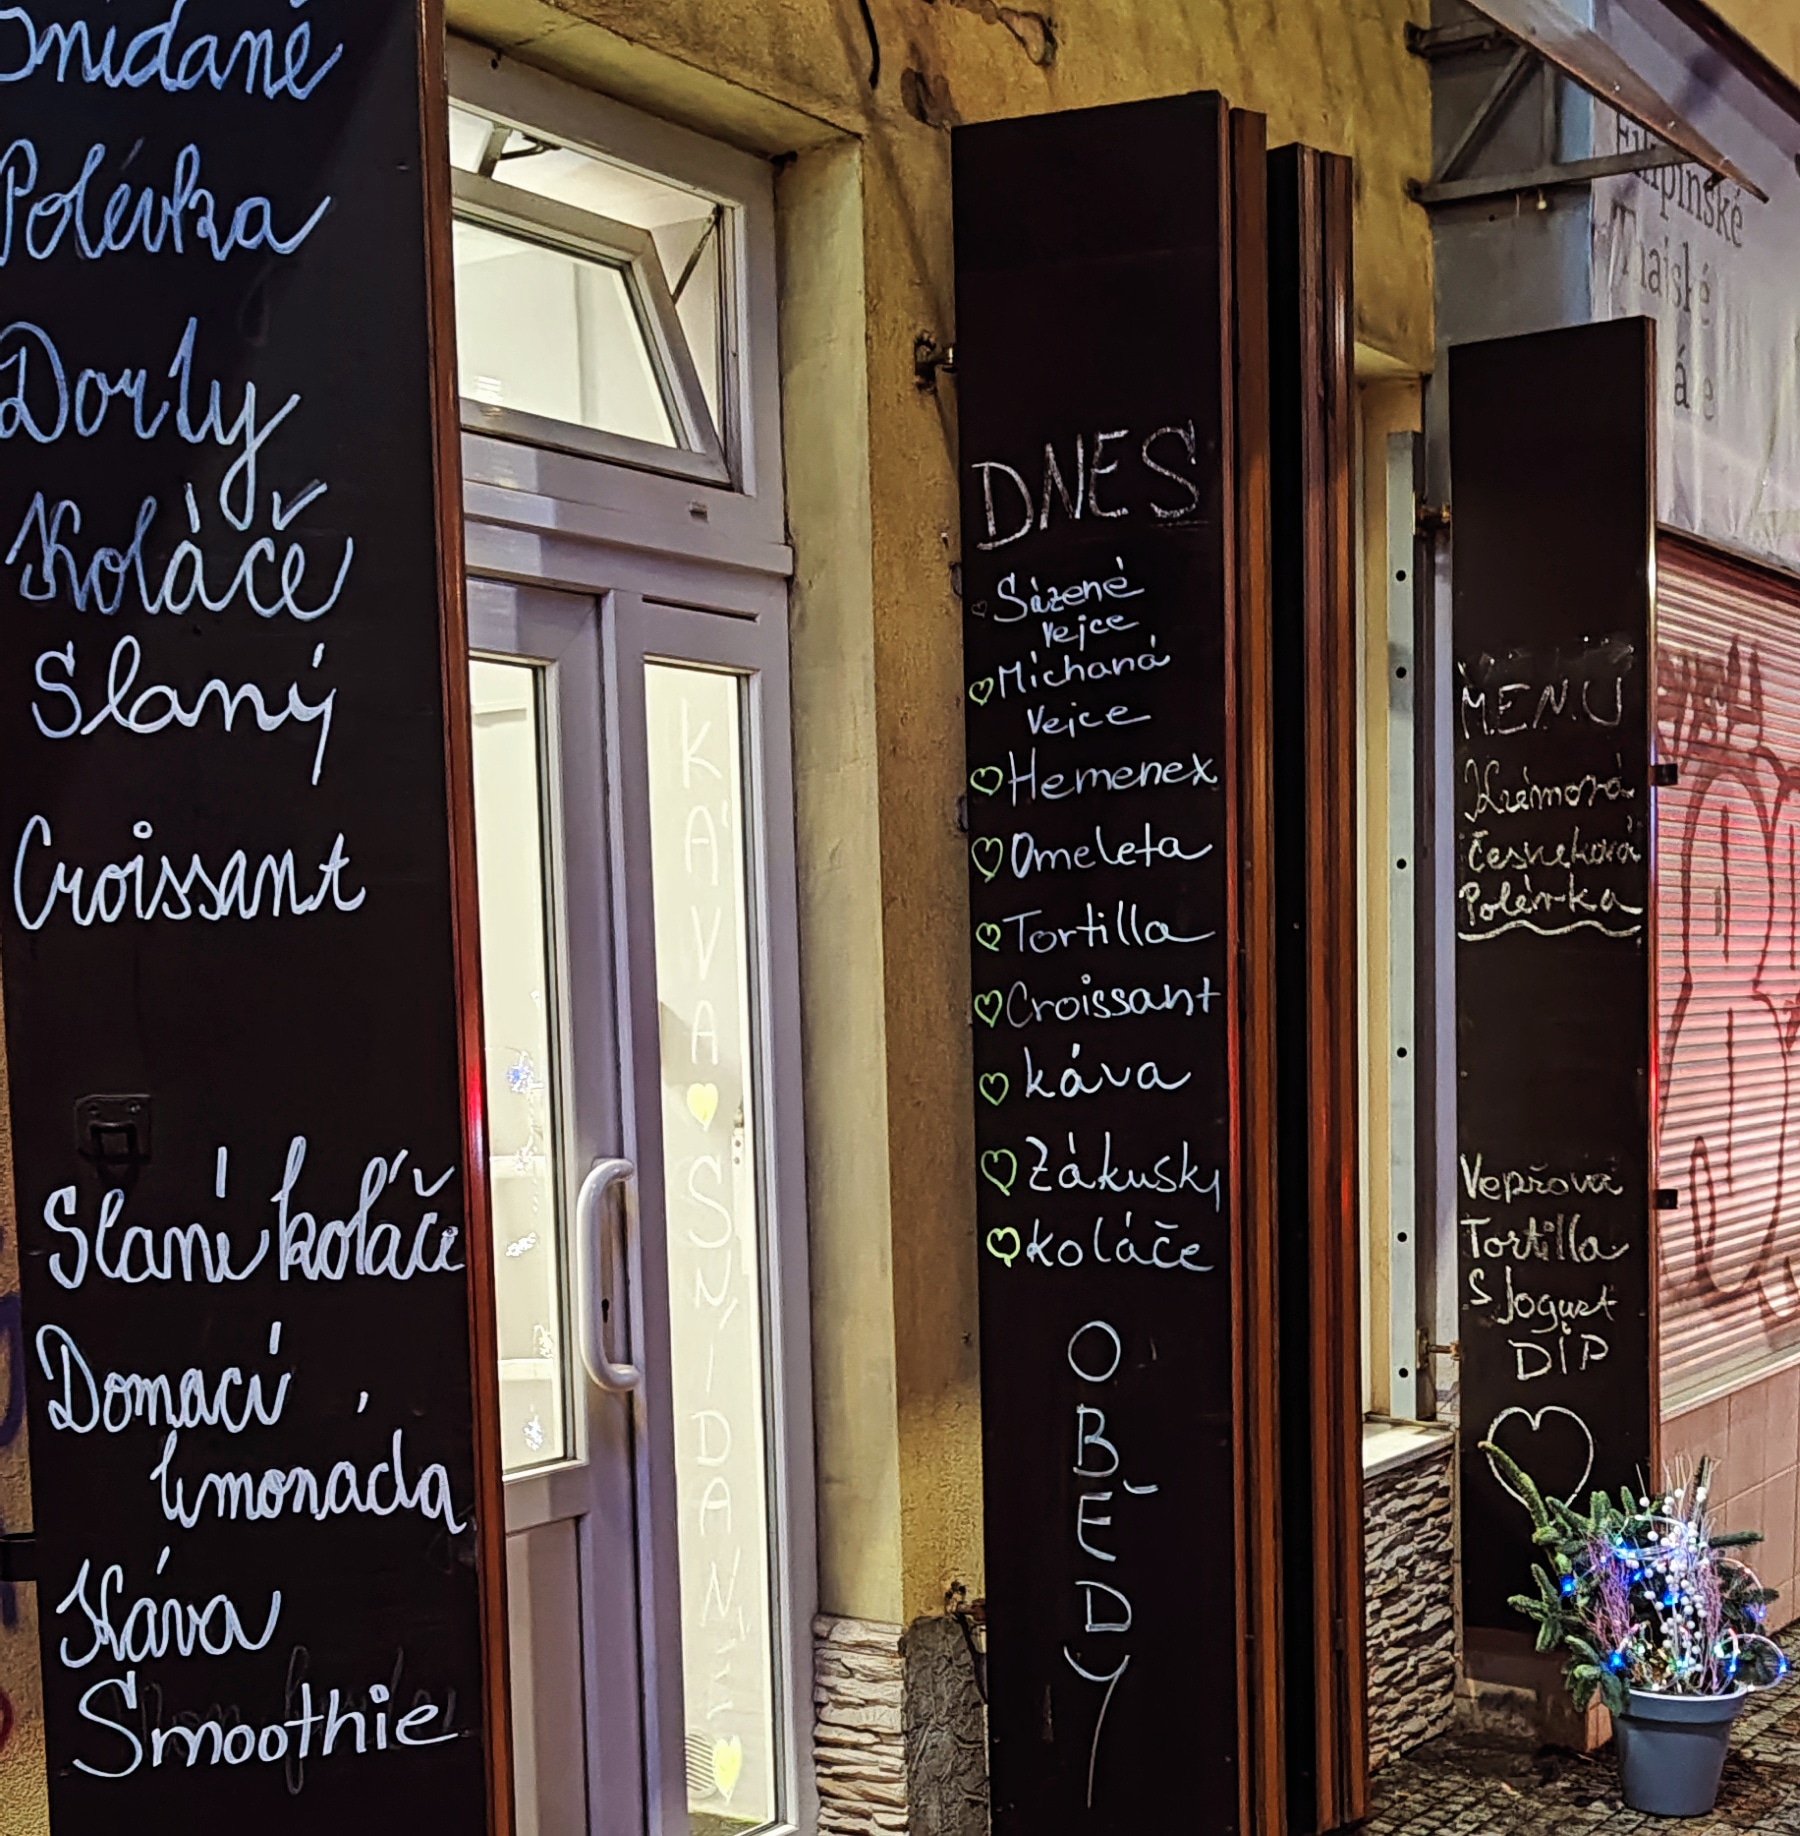 Snídaně
Polévka
Dorty
Koláče
Slaný
Croissant
Slané koláče
Domácí
limonáda
Káva
Smoothie
KÁVA
SNÍDANĚ
DNES
Sázené
Vejce
Míchaná
Vejce
Hemenex
Omeleta
Tortilla
Croissant
káva
Zákusky
koláče
OBĚDY
MENU
Krémová
Česneková
Polévka
Vepřová
Tortilla
S Jogurt
DIP
Filipínské
Thajské